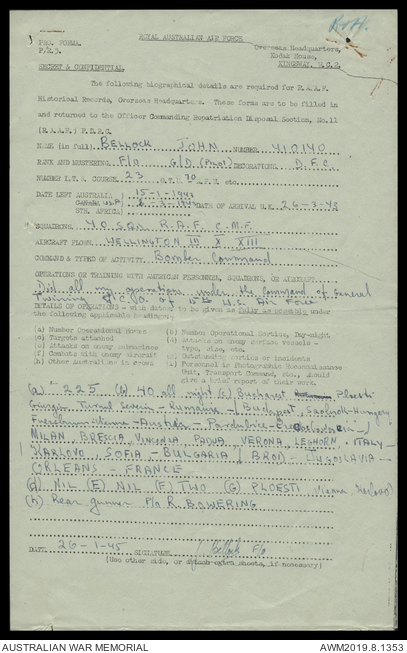 R+H.
ROYAL AUSTRALIAN AIR FORCE
PRO. FORMA.
P/
Overseas Headquarters,
Kodak House,
KINGSWAY, W.C.2.
SECRET & CONFIDENTIAL.
The following biographical details are required for R.A.A.F.
Historical Records, Overseas Headquarters. These forms are to be filled in
and returned to the Officer Commanding Repatriation Disposal Section, No.11
(R.A.A.F.) P.D.R.C.
NAME (in full) BELLOCK JOHN NUMBER 410140
RANK AND MUSTERING F/O G/D (Pilot) DECORATIONS D.F.C.
NUMBER I.T.S. COURSE 23 O.T.U. 70 A.F.U. etc.
DATE LEFT AUSTRALIA 15-1-1943
CANADA DATE OF ARRIVAL U.K. 26-3-43
STH. AFRICA)
SQUADRONS 40 SQN R.A.F. C.M.F.
AIRCRAFT FLOWN WELLINGTON III X XIII
COMMAND & TYPES OF ACTIVITY Bomber Command
OPERATIONS OR TRAINING WITH AMERICAN PERSONNEL, SQUADRONS, OR AIRCRAFT.
Did all my operations under the command of General
Twining C.O. of 15th U.S. Air Force
DETAILS OF OPERATIONS - with dates to be given as fully as possible under
the following applicable headings:
(a) Number Operational Hours
(b) Number Operational Sorties, Day-night
(c) Targets attached
(d) Attacks on enemy surface vessels - type, size, etc.
(e) Attacks on enemy submarines
(f) Combats with enemy aircraft
(g) Outstanding sorties or incidents
(h) Other Australians in crew
Personnel in Photographic Reconnaissance Unit, Transport Command, etc., should give a brief report of their work.
(a) 225 (b) 40 all night (c) Bucharest Ploesti
Giurgiu Turnul Severin - Rumania - Budapest, Hungary
Vienna - Austria - Pardubice -
MILAN, BRESCIA, VINCENZA PADUA, VERONA, LEGHORN, - ITALY -
KARLOVO, SOFIA - BULGARIA BROD - YUGOSLAVIA -
ORLEANS - FRANCE
(d) NIL (E) NIL (F) TWO (G) PLOESTI Vienna, Karlovo)
(h) Rear gunner F/O R. BOWERING
DATE 26-1-45 SIGNATURE J Bellock F/O
(Use other side, or attach extra sheets, if necessary)
AUSTRALIAN WAR MEMORIAL
AWM2019.8.1353